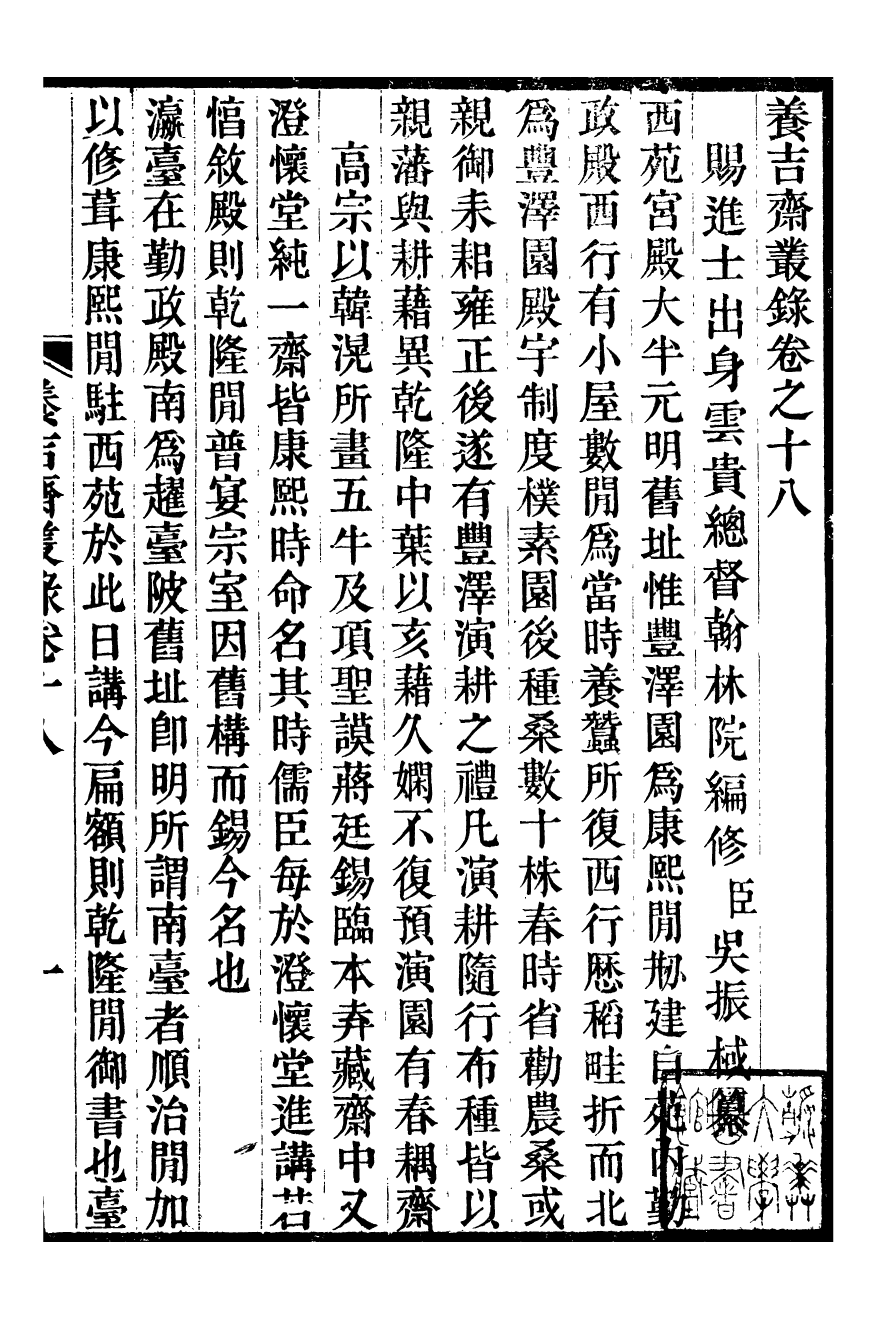 養吉齋叢錄卷之十八
賜進士出身雲貴總督翰林院編修臣吳振棫纂
西苑宮殿大半元明舊址惟豐澤園爲康熙閒刱建自苑內勤
政殿西行有小屋數閒爲當時養蠶所復西行歷稻畦折而北
爲豐澤園殿宇制度樸素園後種桑數十株春時省勸農桑或
親御耒耜雍正後遂有豐澤演耕之禮凡演耕隨行布種皆以
親藩與耕藉異乾隆中葉以亥藉久嫻不復預演園有春耦齋
高宗以韓滉所畫五牛及項聖謨蔣廷錫臨本弆藏齋中又
澄懷堂純一齋皆康熙時命名其時儒臣每於澄懷堂進講若
惇敘殿則乾隆閒普宴宗室因舊構而錫今名也
瀛臺在勤政殿南爲趯臺陂舊址卽明所謂南臺者順治閒加
以修葺康熙閒駐西苑於此日講今扁額則乾隆閒御書也臺
養吉齋叢錄卷十八
一